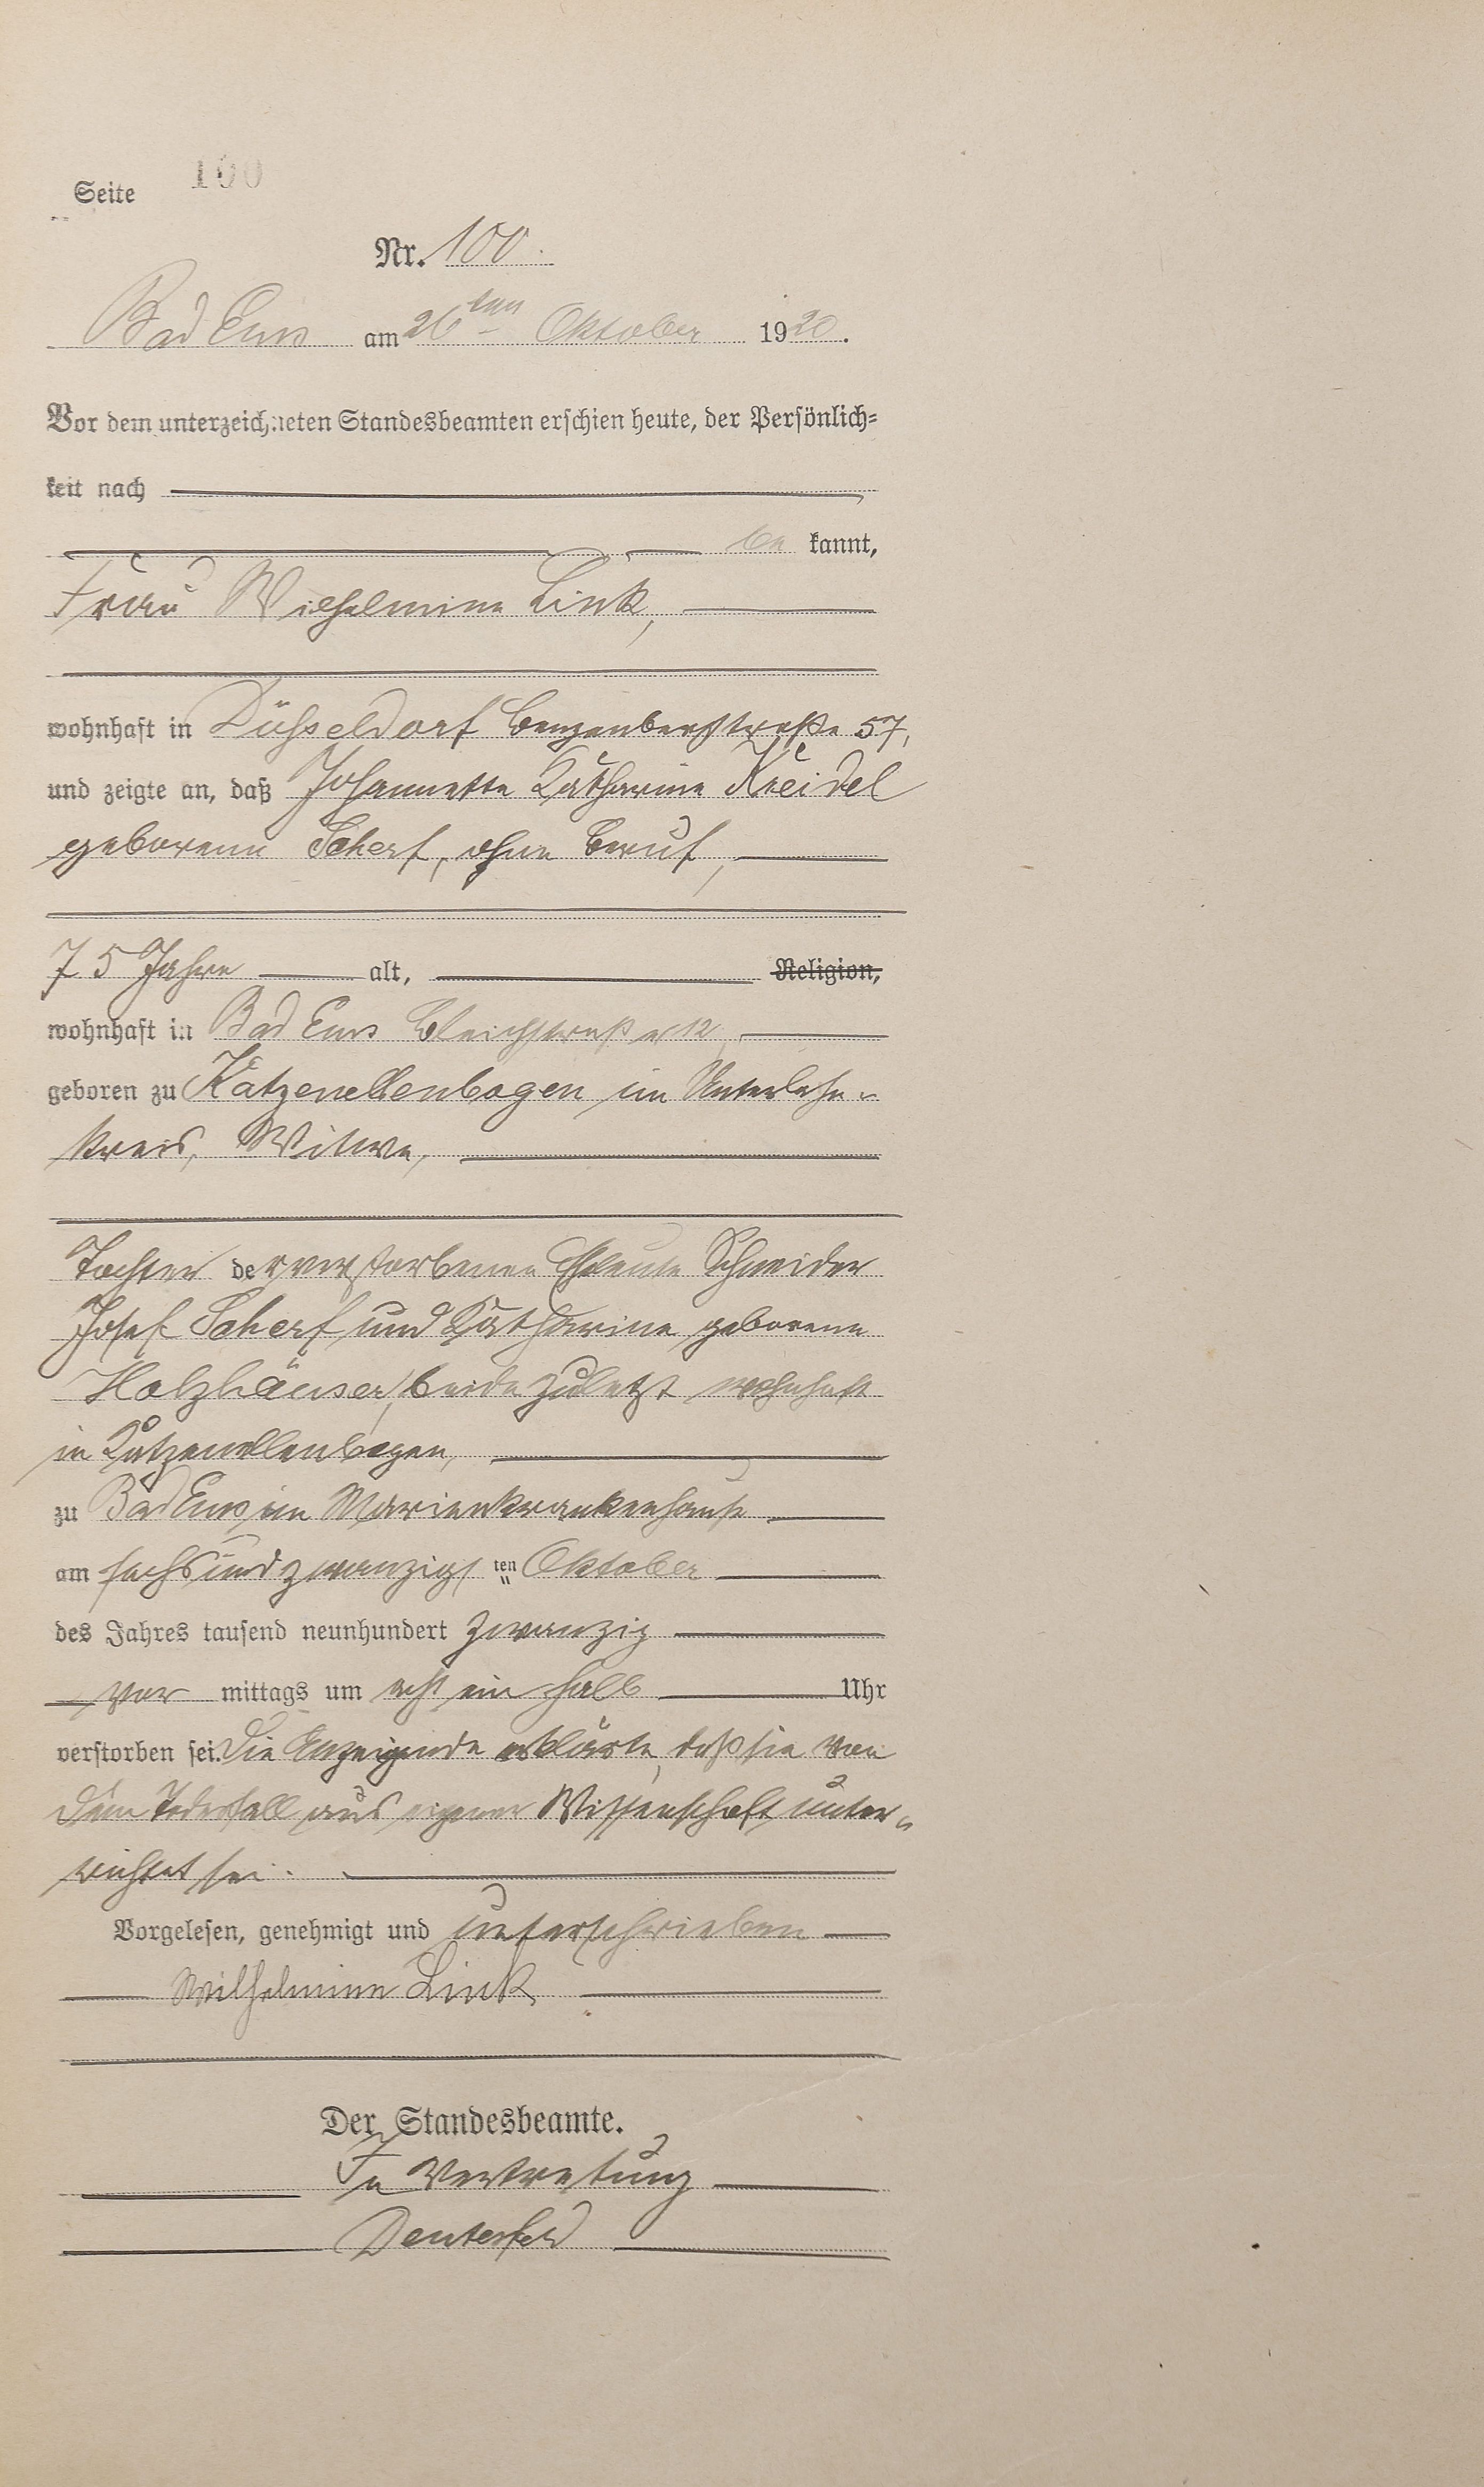 Seite 100
Nr. 100.
Bad Ems am 26ten Oktober 1920.
Vor dem unterzeichneten Standesbeamten erschien heute, der Persönlich=
keit nach
be kannt,
Frau Wilhelmine Link,
wohnhaft in Düsseldorf Benzenbergstraße 57,
und zeigte an, daß Johannette Katharine Kreidel
geborene Scherf, ohne Beruf,
75 Jahre alt, Religion,
wohnhaft in Bad Ems Bleichstraße 12,
geboren zu Katzenellenbogen im Unterlahn-
kreis, Witwe,
Tochter der verstorbenen Eheleute Schneider
Josef Scherf und Katharine geborene
Holzhäuser, beide zuletzt wohnhaft
in Katzenellenbogen,
zu Bad Ems im Marienkrankenhause
am sechsundzwanzigsten Oktober
des Jahres tausend neunhundert zwanzig
vor mittags um acht ein halb Uhr
verstorben sei. Die Anzeigende erklärte, daß sie von
dem Todesfall aus eigener Wissenschaft unter-
richtet sei.
Vorgelesen, genehmigt und unterschrieben
Wilhelmine Link
Der Standesbeamte.
In Vertretung